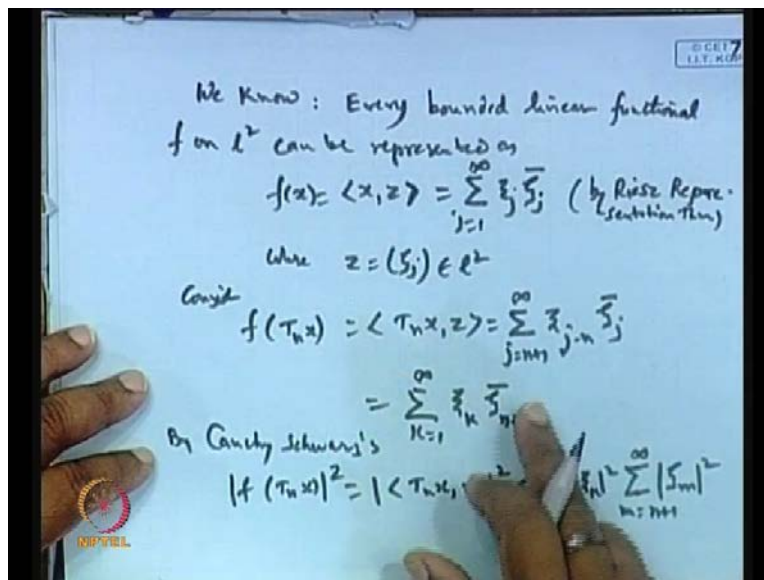 © CET
I.I.T. KGP
7
We Know : Every bounded linear functional
f on l² can be represented as
f(x) = <x, z> = Σ_{j=1}^{∞} ξ_j ζ̄_j ( by Riesz Repre-
sentation Thm)
where z = (ζ_j) ∈ l²
Consid
f(T_n x) = <T_n x, z> = Σ_{j=n+1}^{∞} ξ_{j-n} ζ̄_j
= Σ_{k=1}^{∞} ξ_k ζ̄_n
By Cauchy Schwarz's
|f(T_n x)|² = |<T_n x, |² |² Σ_{m=n+1}^{∞} |ζ_m|²
NPTEL